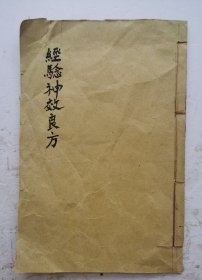 經驗神效良方